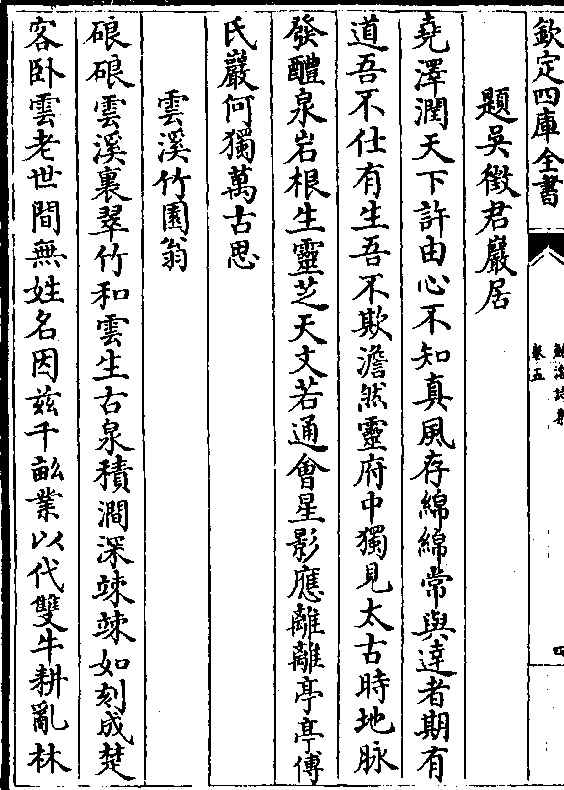 欽定四庫全書
卷五
題吳徵君巖居
堯澤潤天下許由心不知真風存綿綿常與達者期有
道吾不仕有生吾不欺澹然靈府中獨見太古時地脉
發醴泉岩根生靈芝天文若通會星影應離離亭亭傅
氏巖何獨萬古思
雲溪竹園翁
硠硠雲溪裏翠竹和雲生古泉積澗深竦竦如刻成楚
客卧雲老世間無姓名因兹千畝業以代雙牛耕亂林